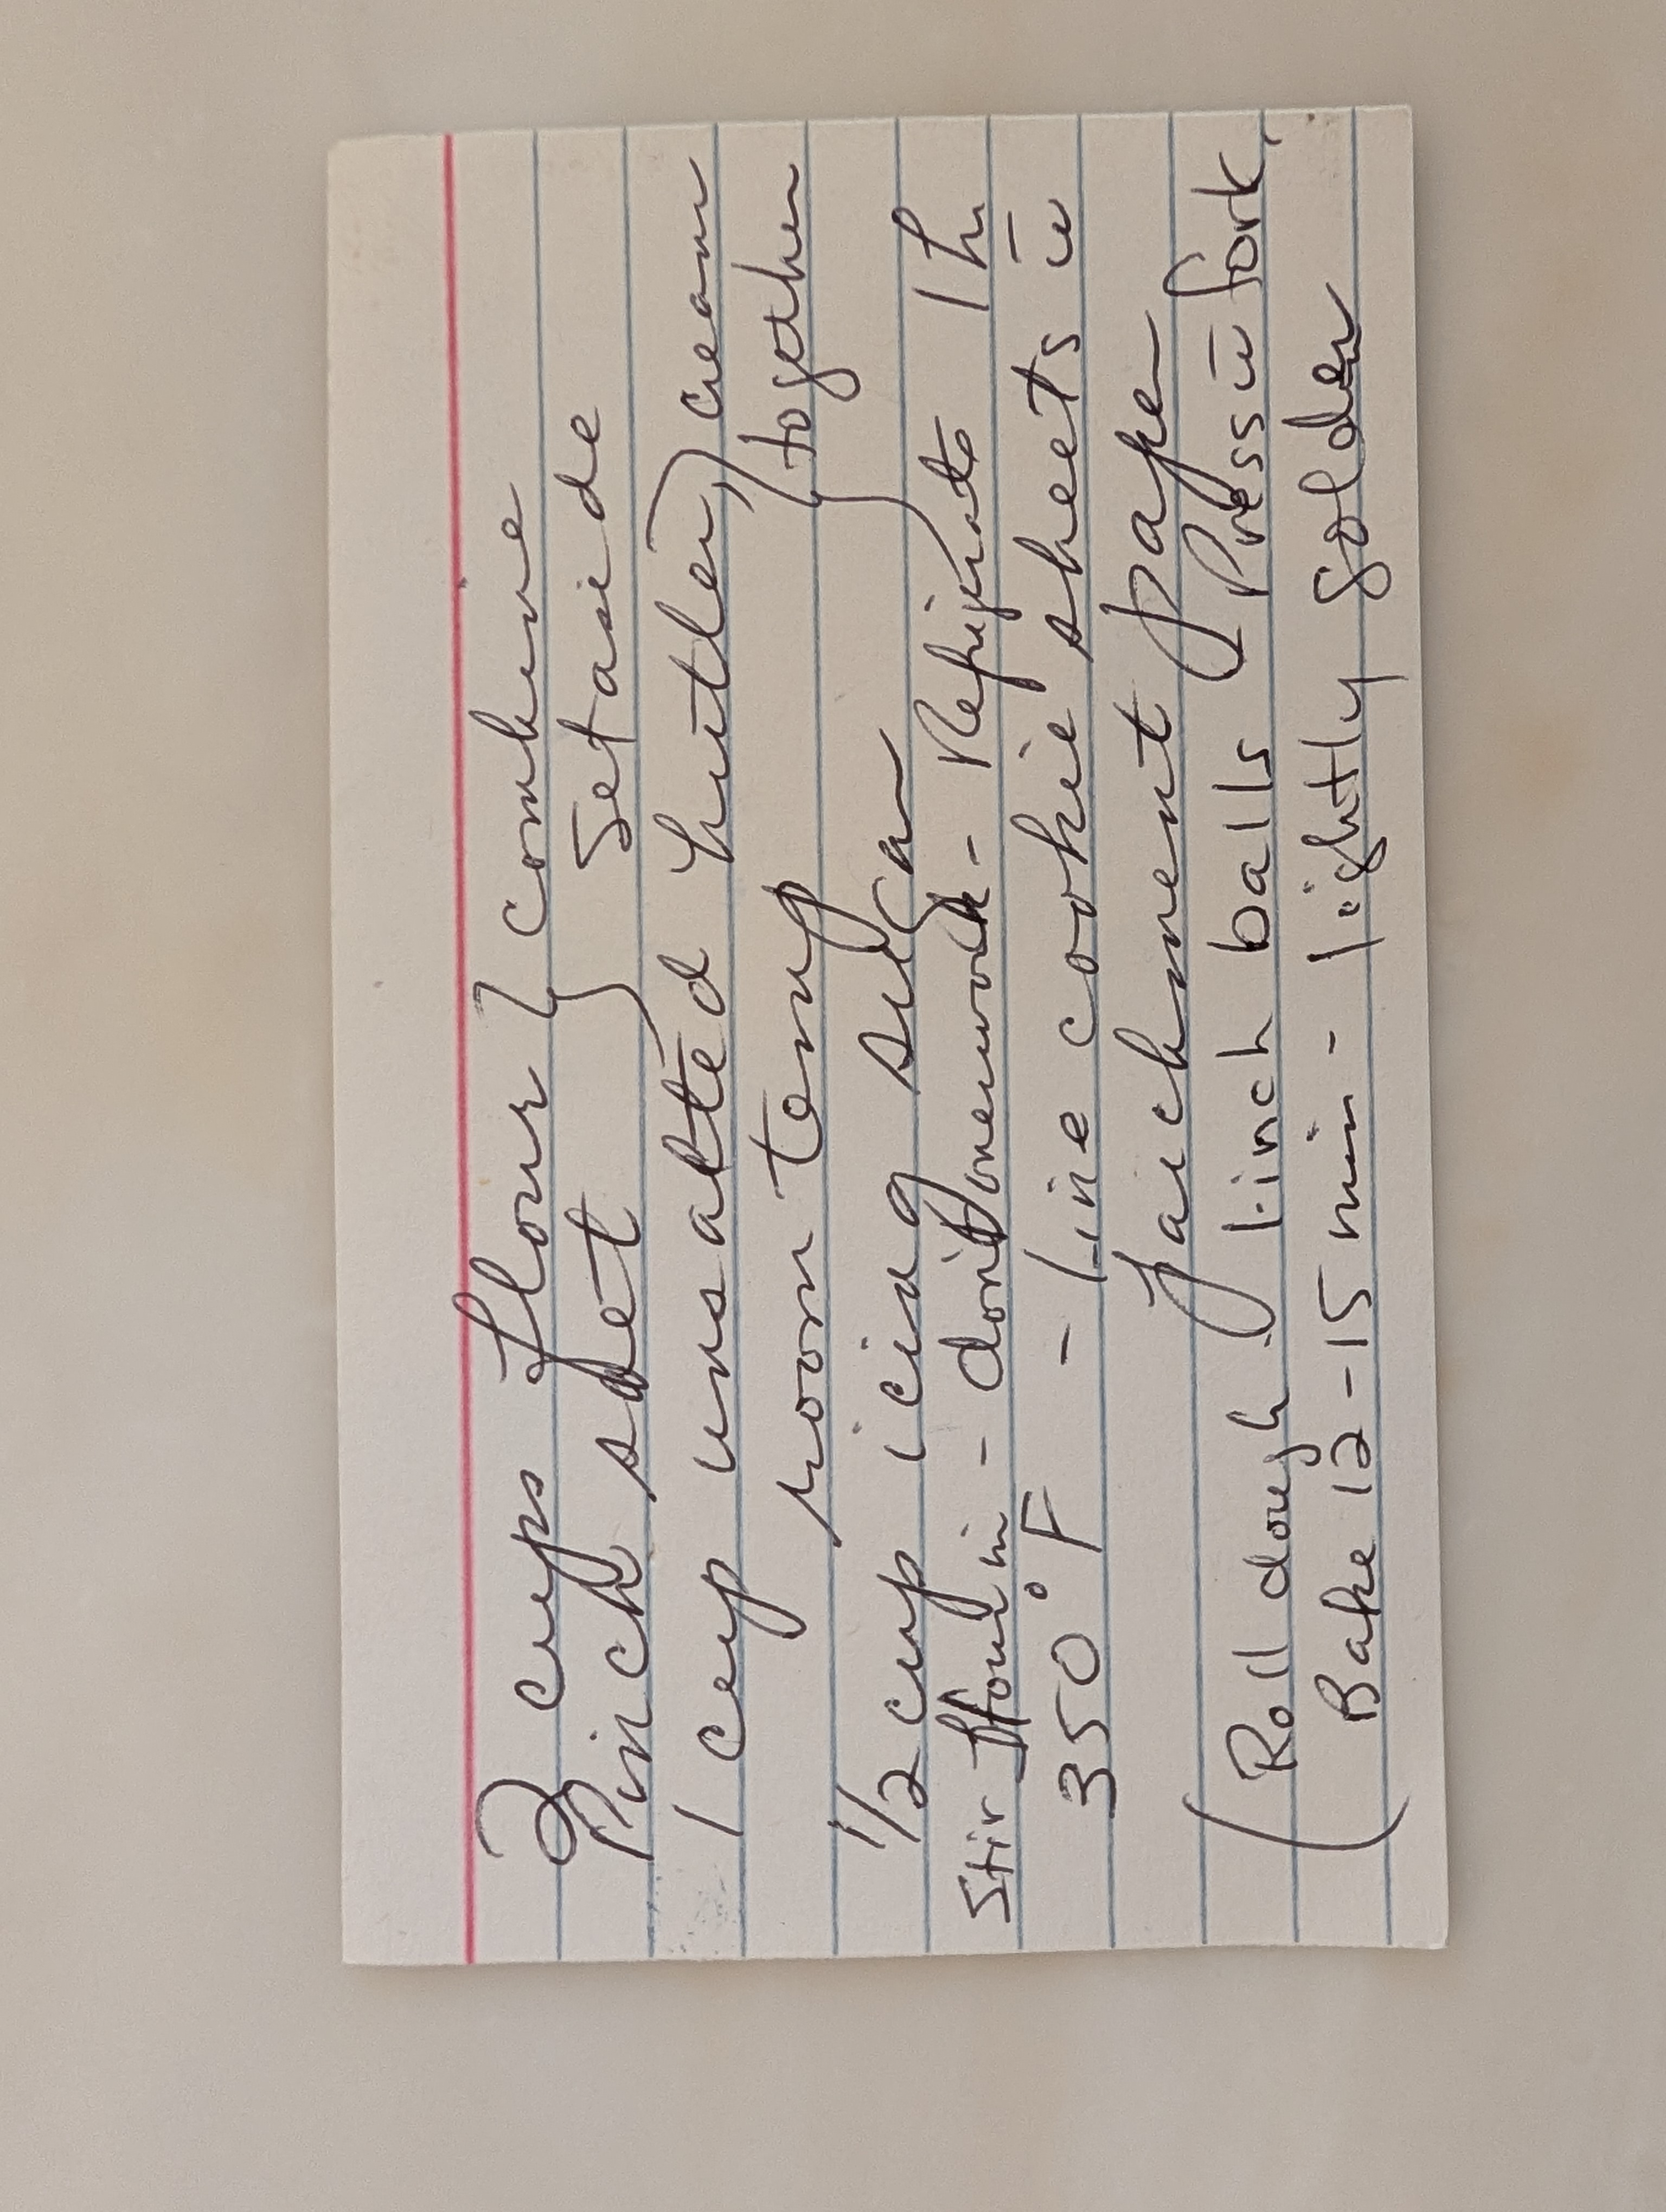 2 cups flour } combine
Pinch salt } Set aside
1 cup unsalted butter, } cream
room temp } together
1/2 cup icing sugar
Stir flour in - don't overwork - Refrigerate 1 h
350°F - line cookie sheets c̄
parchment paper
( Roll dough 1 inch balls Press c̄ fork,
Bake 12-15 min - lightly golden